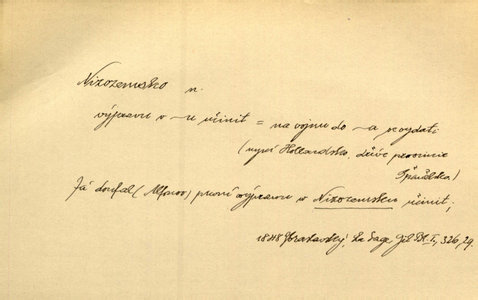 Nizozemsko n.
výpravu v ~u učiniti = na vojnu do ~a se vydati
(nyní Hollandsko, dříve provincie
Španělska)
Já doufal (Alfons) první výpravu v Nizozemsku učinit;
1848 Bratavský, Le Sage Gil Bl. I, 326, 29.